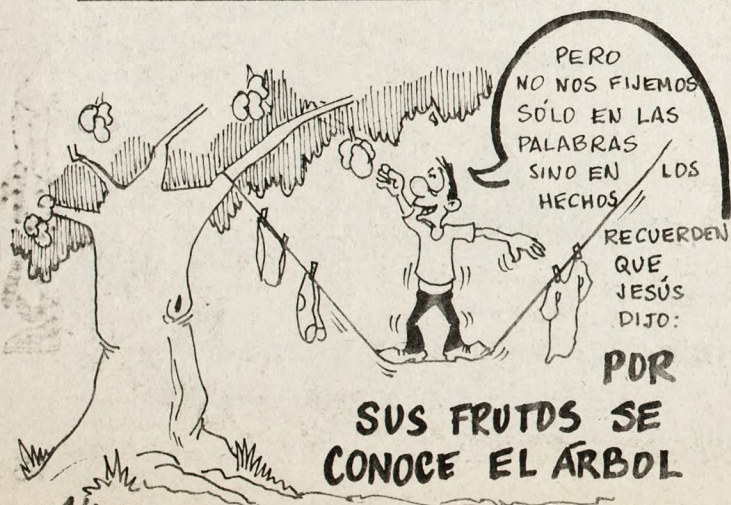 PERO
NO NOS FIJEMOS
SÓLO EN LAS
PALABRAS
SINO EN LOS
HECHOS
RECUERDEN
QUE
JESÚS
DIJO:
POR
SUS FRUTOS SE
CONOCE EL ÁRBOL